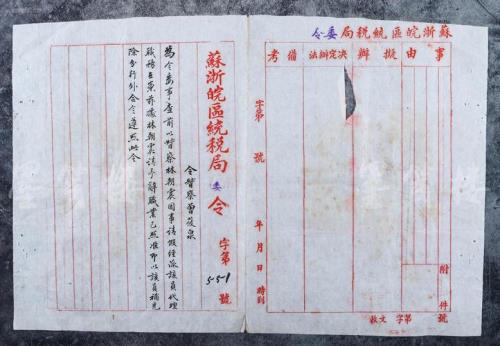 蘇浙皖區統稅局委令
事由
擬辦
決定辦法
備考
字第 號 年 月 日 時到
附件
收文 字第 號
蘇浙皖區統稅局委令 字第551號
令警察曾筱泉
為令委事查前以警察林朝震因事請假經派該員代理
職務在案茲據林朝震請予辭職業已照准即以該員補充
除分行外合令遵照此令